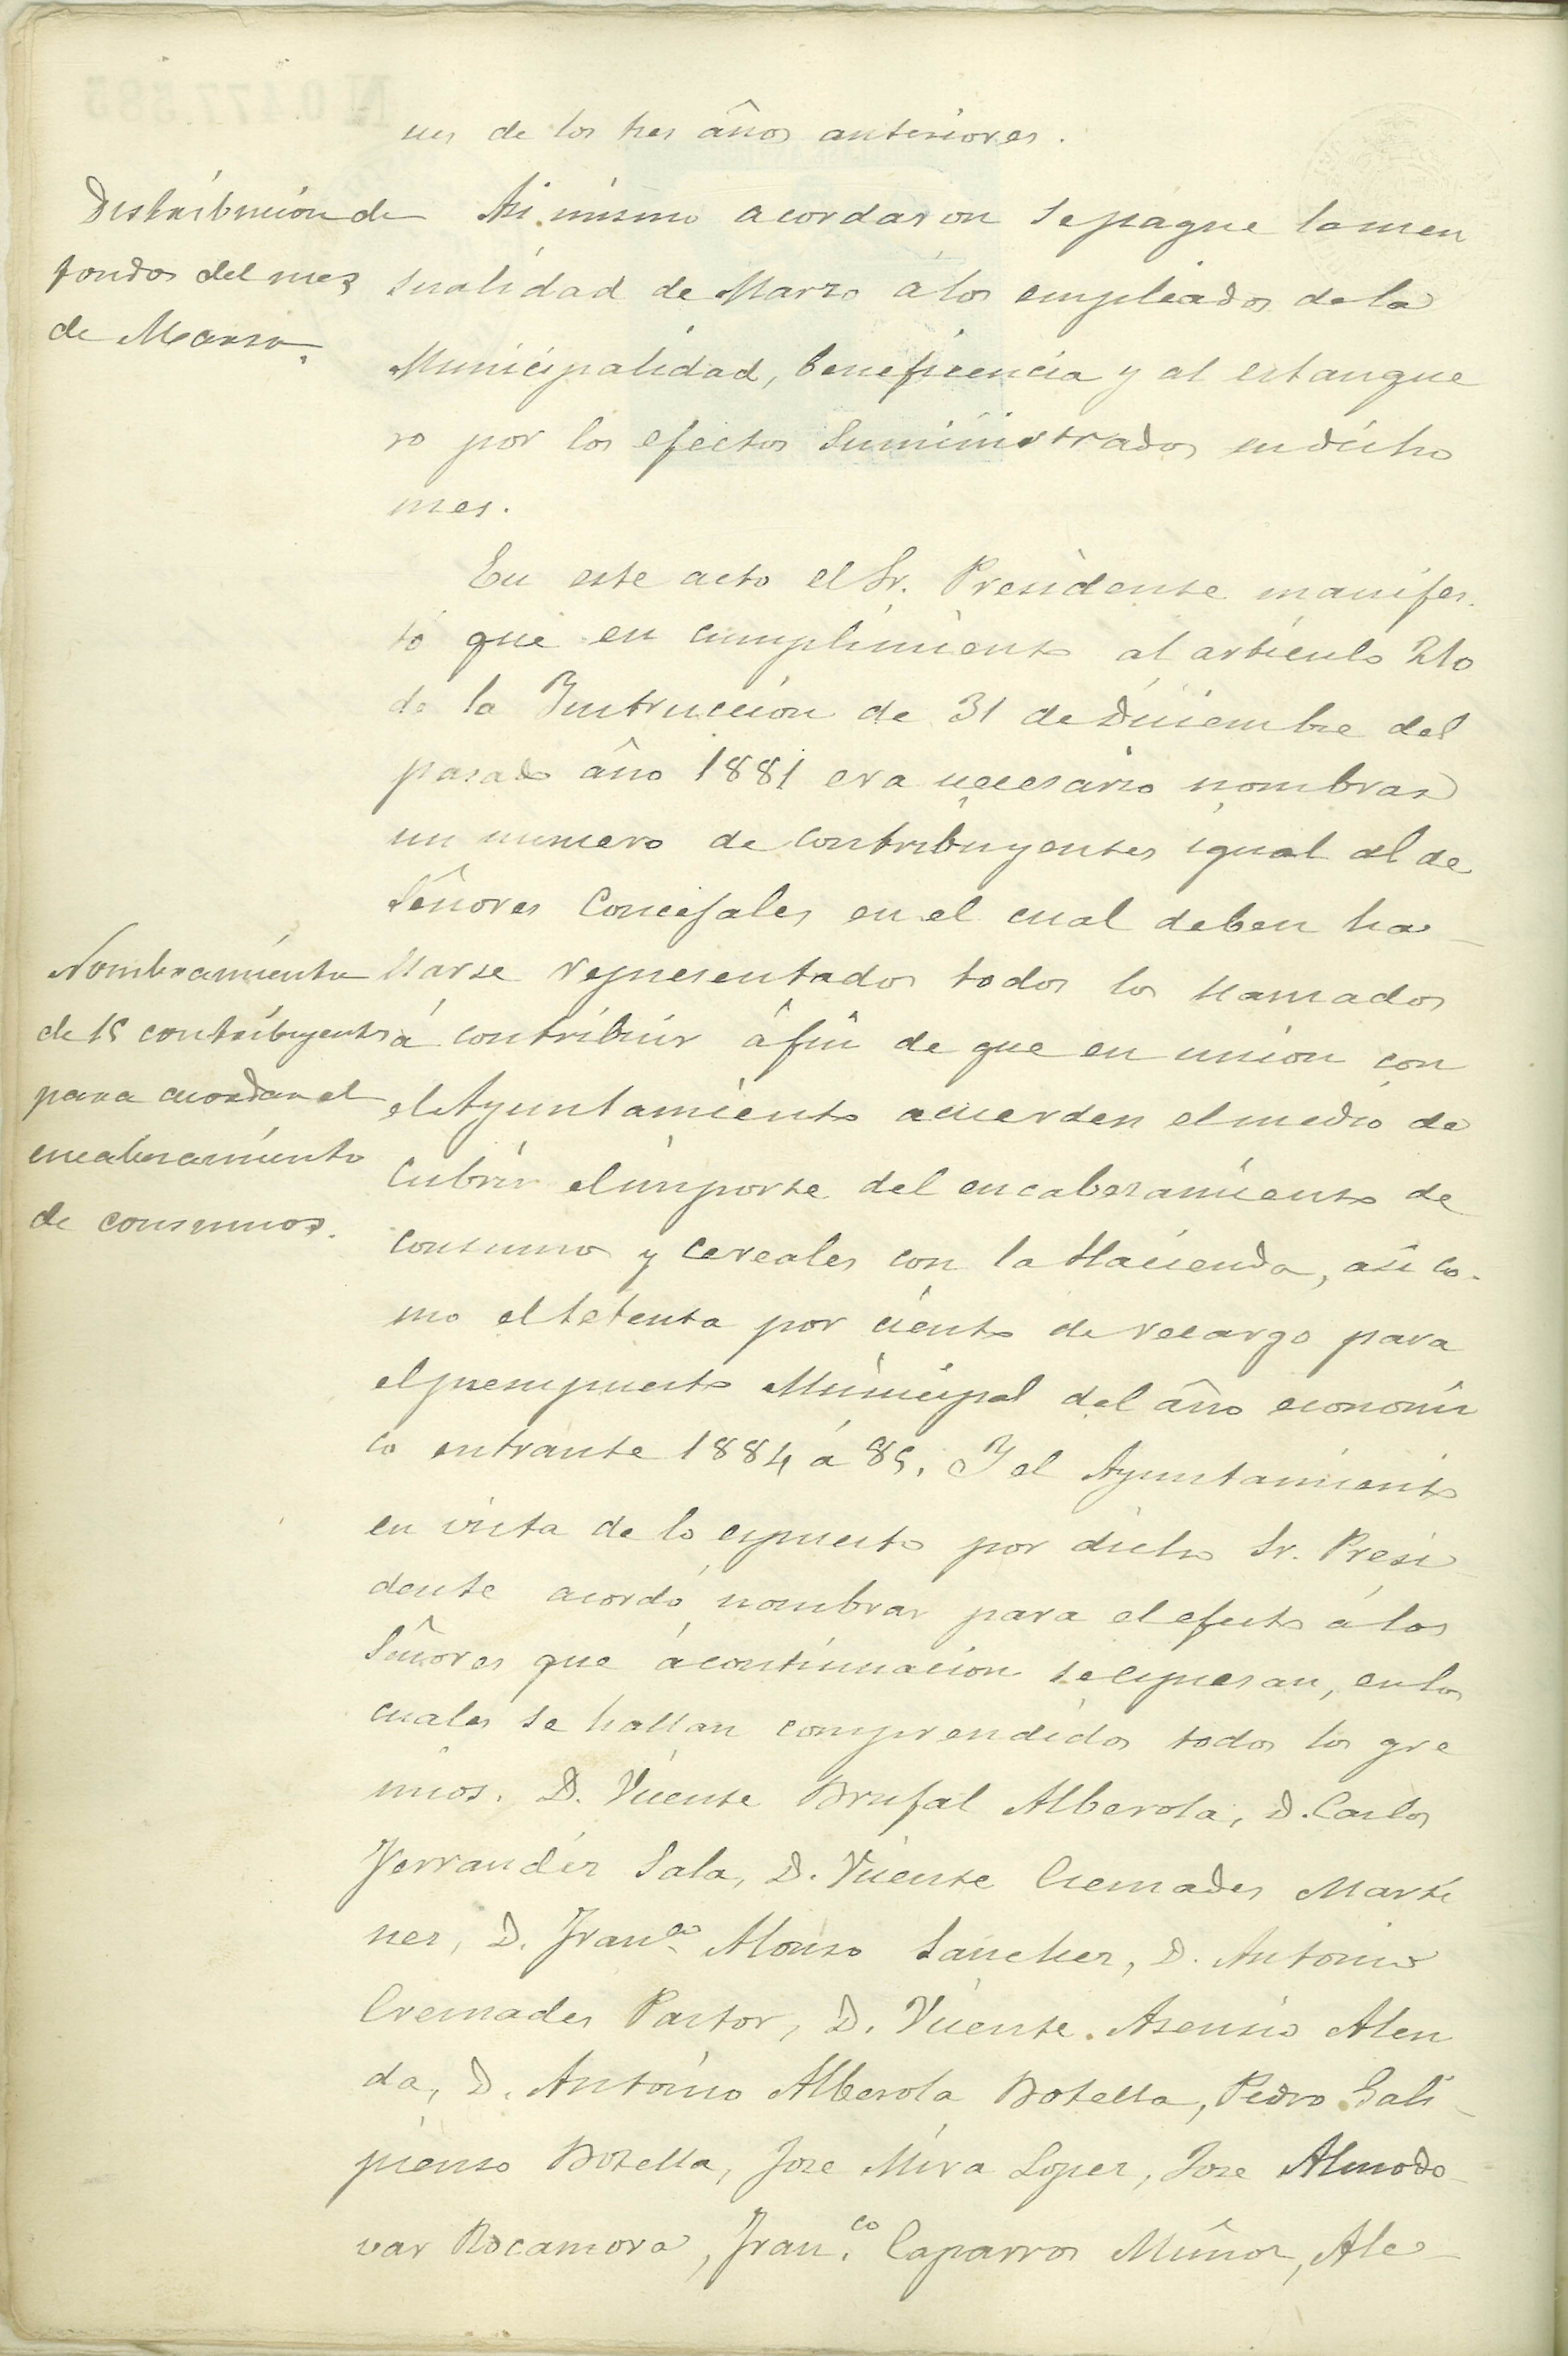 nes de los tres años anteriores.
Distribucion de
fondos del mes
de Marzo.
Asi mismo acordaron se pague la men
sualidad de Marzo á los empleados de la
Municipalidad, beneficencia y al estanque
ro por los efectos suministrados en dicho
mes.
En este acto el Sr. Presidente manifes-
tó que en cumplimiento al articulo 210
de la Instruccion de 31 de Diciembre del
pasado año 1881 era necesario nombrar
un numero de contribuyentes igual al de
Señores Concejales en el cual deben ha-
Nombramiento
de 15 contribuyentes
para acordar el
encabezamiento
de consumos.
llarse representados todos los llamados
á contribuir á fin de que en union con
el Ayuntamiento acuerden el medio de
cubrir el importe del encabezamiento de
consumos y cereales con la Hacienda, asi co-
mo el setenta por ciento de recargo para
el presupuesto Municipal del año economi
co entrante 1884 á 85. Y el Ayuntamiento
en vista de lo espuesto por dicho Sr. Presi-
dente acordó nombrar para el efecto á los
Señores que á continuacion se espresan, en los
cuales se hallan comprendidos todos los gre
mios. D. Vicente Brufal Alberola, D. Carlos
Ferrandez Sala, D. Vicente Cremades Marti
nez, D. Franco. Alonso Sanchez, D. Antonio
Cremades Pastor, D. Vicente Asensio Alen
da, D. Antonio Alberola Botella, Pedro Gali-
pienso Botella, Jose Mira Lopez, Jose Almodo-
var Rocamora, Fran.co Caparros Muñoz, Ale-